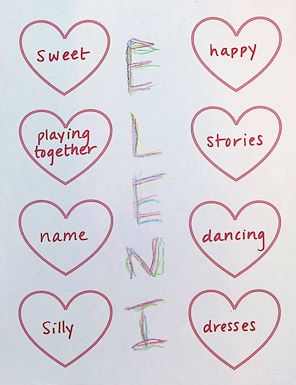 sweet
happy
playing
together
stories
name
dancing
silly
dresses
ELENI